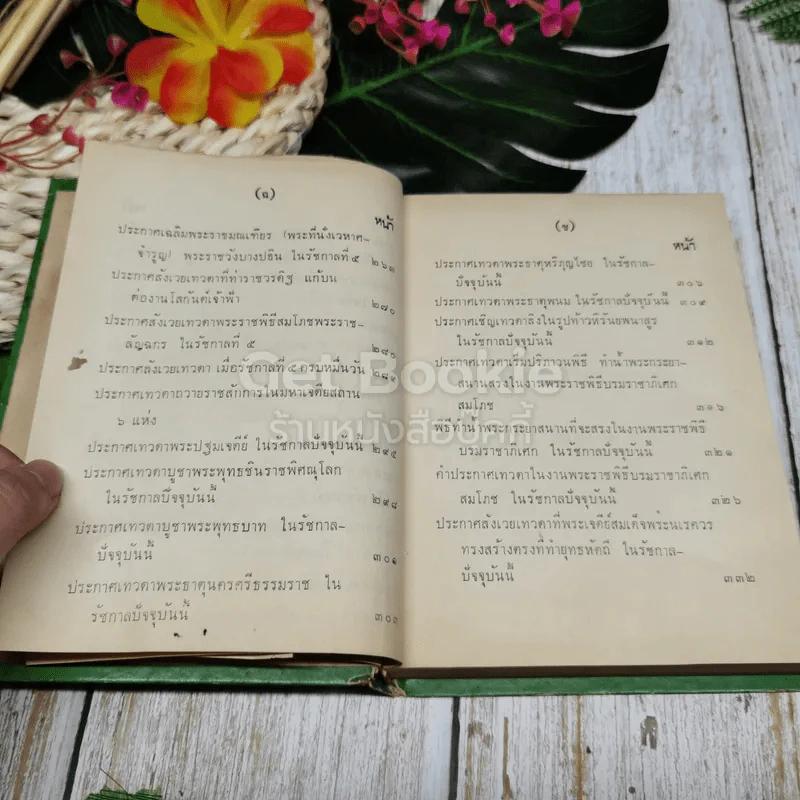 (ฉ)
หน้า
ประกาศเฉลิมพระราชมณเฑียร (พระที่นั่งเวหาศ-
จำรูญ) พระราชวังบางปอิน ในรัชกาลที่ ๕ ๒๖๑
ประกาศสังเวยเทวดาที่ท่าราชวรดิฐ แก้บน
ต่องานโสกันต์เจ้าฟ้า ๒๗๐
ประกาศสังเวยเทวดาพระราชพิธีสมโภชพระราช-
ลัญฉกร ในรัชกาลที่ ๕ ๒๘๐
ประกาศสังเวยเทวดา เมื่อรัชกาลที่ ๕ ครบหมื่นวัน
ประกาศเทวดาถวายราชสักการในมหาเจดียสถาน
๖ แห่ง
ประกาศเทวดาพระปฐมเจดีย์ ในรัชกาลปัจจุบันนี้ ๒๙๕
ประกาศเทวดาบูชาพระพุทธชินราชพิศณุโลก
ในรัชกาลปัจจุบันนี้ ๒๙๘
ประกาศเทวดาบูชาพระพุทธบาท ในรัชกาล-
ปัจจุบันนี้ ๓๐๑
ประกาศเทวดาพระธาตุนครศรีธรรมราช ใน
รัชกาลปัจจุบันนี้ ๓๐๓
(ช)
หน้า
ประกาศเทวดาพระธาตุหริภุญไชย ในรัชกาล-
ปัจจุบันนี้ ๓๐๖
ประกาศเทวดาพระธาตุพนม ในรัชกาลปัจจุบันนี้ ๓๐๙
ประกาศเชิญเทวดาสิงในรูปท้าวหิรันยพนาสูร
ในรัชกาลปัจจุบันนี้ ๓๑๒
ประกาศเทวดาเริ่มปริภาวนพิธี ทำน้ำพระกระยา-
สนานสรงในงานพระราชพิธีบรมราชาภิเศก
สมโภช ๓๑๖
พิธีทำน้ำพระกระยาสนานที่จะสรงในงานพระราชพิธี
บรมราชาภิเศก ในรัชกาลปัจจุบันนี้ ๓๒๑
คำประกาศเทวดาในงานพระราชพิธีบรมราชาภิเศก
สมโภช ในรัชกาลปัจจุบันนี้ ๓๒๖
ประกาศสังเวยเทวดาที่พระเจดีย์สมเด็จพระนเรศวร
ทรงสร้างตรงที่ทำยุทธหัตถี ในรัชกาล-
ปัจจุบันนี้ ๓๓๒
Get Bookie
ร้านหนังสือบุ๊คกี้